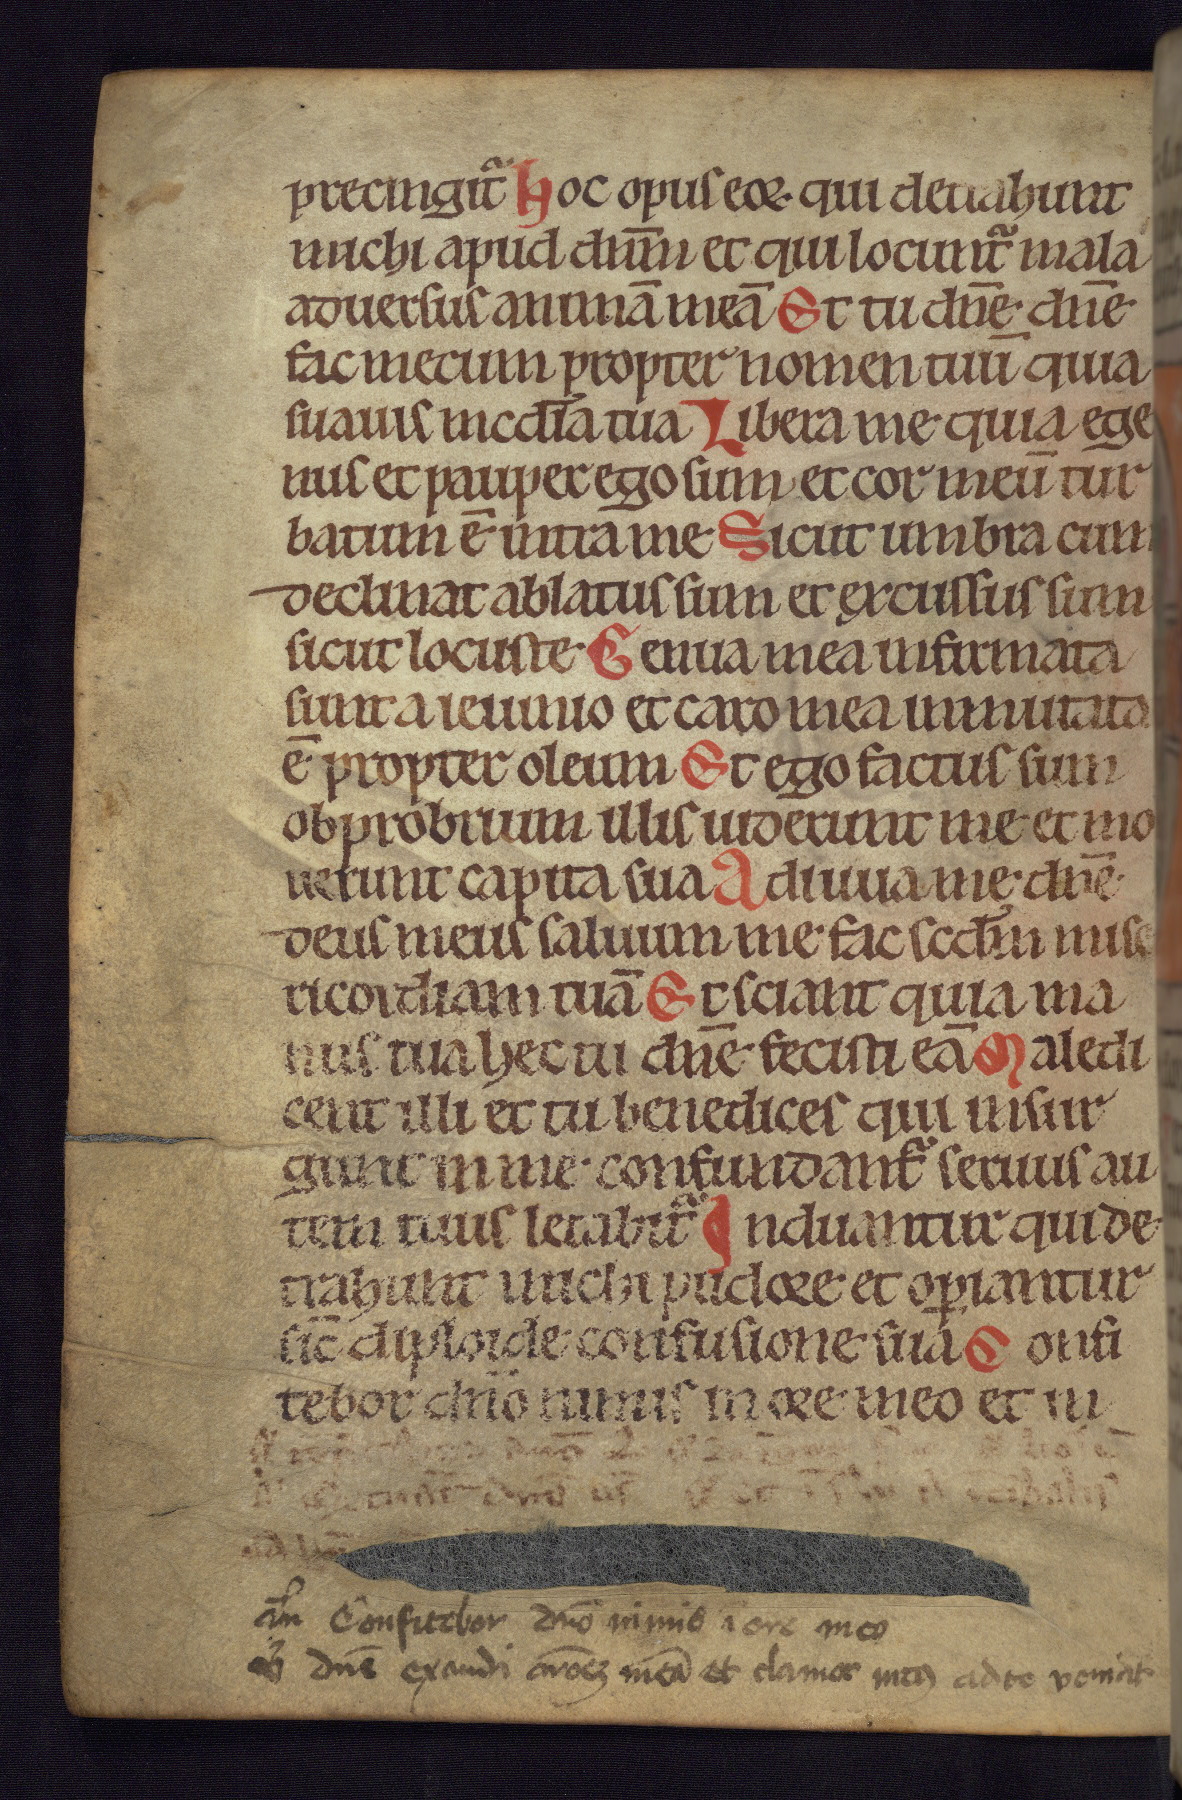 precingit᷑ Hoc opus eoꝝ qui detrahunt
michi apud dn̄m et qui locunt᷑ mala
aduersus animā meā Et tu dn̄e dn̄e
fac mecum propter nomen tuū quia
suauis mc̄dia tua Libera me quia ege
nus et pauper ego sum et cor meū tur
batum ē intra me Sicut umbra cum
declinat ablatus sum et excussus sum
sicut locuste Genua mea infirmata
sunt a ieiunio et caro mea inmutata
ē propter oleum Et ego factus sum
obprobrium illis uiderunt me et mo
uerunt capita sua Adiuua me dn̄e
deus meus saluum me fac scd̄m mise
ricordiam tuā Et sciant quia ma
nus tua hec tu dn̄e fecisti eā Maledi
cent illi et tu benedices qui insur
gunt in me confundant᷑ seruus au
tem tuus letabit᷑ Induantur qui de
trahunt michi pudore et operiantur
sic̄ diploide confusione sua Confi
tebor dn̄o nimis in ore meo et in
añ Confitebor dn̄o nimis ī ore meo
℣ dn̄e exaudi orōeꝫ meā et clamor meꝰ ad te veniat